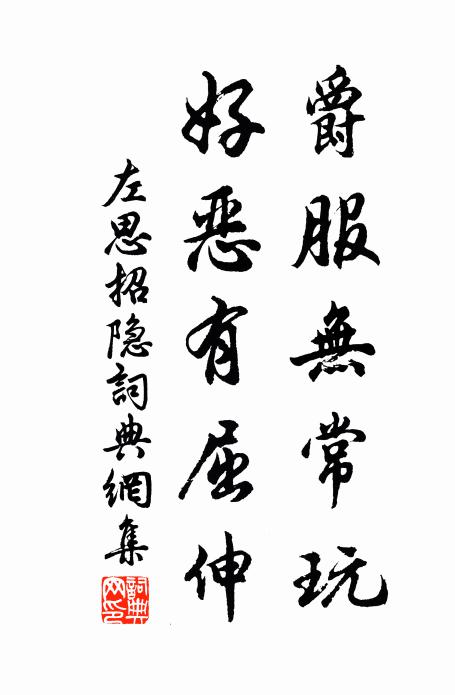 爵服無常玩
好惡有屈伸
左思招隐詞典網集
詞典網印